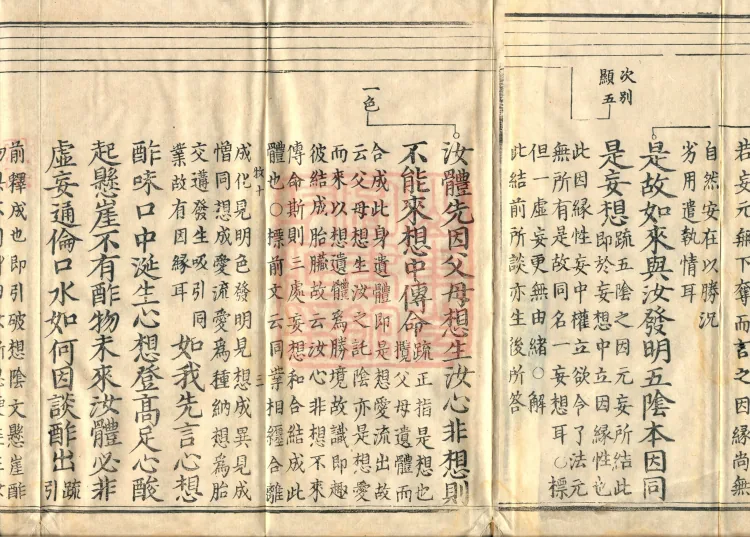 若妄元無下奪而言之因緣尚無
自然安在以勝況
劣用遣執情耳
次別
顯五
是故如來與汝發明五陰本因同
是妄想
疏五陰之因元妄所結此
即於妄想中立因緣性也
此因緣性妄中權立欲令了法元
無所有是故同名一妄想耳○標
但一虛妄更無由緒○解
此結前所談亦生後所答
一色
汝體先因父母想生汝心非想則
不能來想中傳命
疏正指是想也
攬父母遺體而
合成此身遺體即是想愛流出故
云父母想生汝之託陰亦是想愛
而來以想遺體為勝境故識即趣
彼結成胎臟故云汝心非想不來
傳命斯則三處妄想和合結成此
體也○標前文云同業相纏合離
牧十
三
成化見明色發明見想成異見成
憎同想成愛流愛為種納想為胎
交遘發生吸引同
業故有因緣耳
如我先言心想
酢味口中涎生心想登高足心酸
起懸崖不有酢物未來汝體必非
虛妄通倫口水如何因談酢出
疏
引
前釋成也即引破想陰文懸崖酢